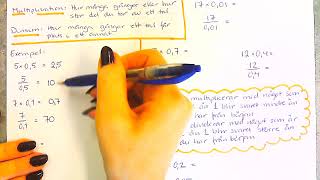 Multiplikation: Hur många gånger eller hur
stor del du tar av ett tal
Division: Hur många gånger ett tal får
plats i ett annat
Exempel:
5 × 0,5 = 2,5
5/0,5 = 10
7 × 0,1 = 0,7
7/0,1 = 70
× 0,7 =
17 × 0,01
17/0,01
12 × 0,4
12/0,4
multiplicerar med något som
än 1 blir svaret mindre än
du har från början
dividerar med något som är
än 1 blir svaret större än
du har från början
0,2 =